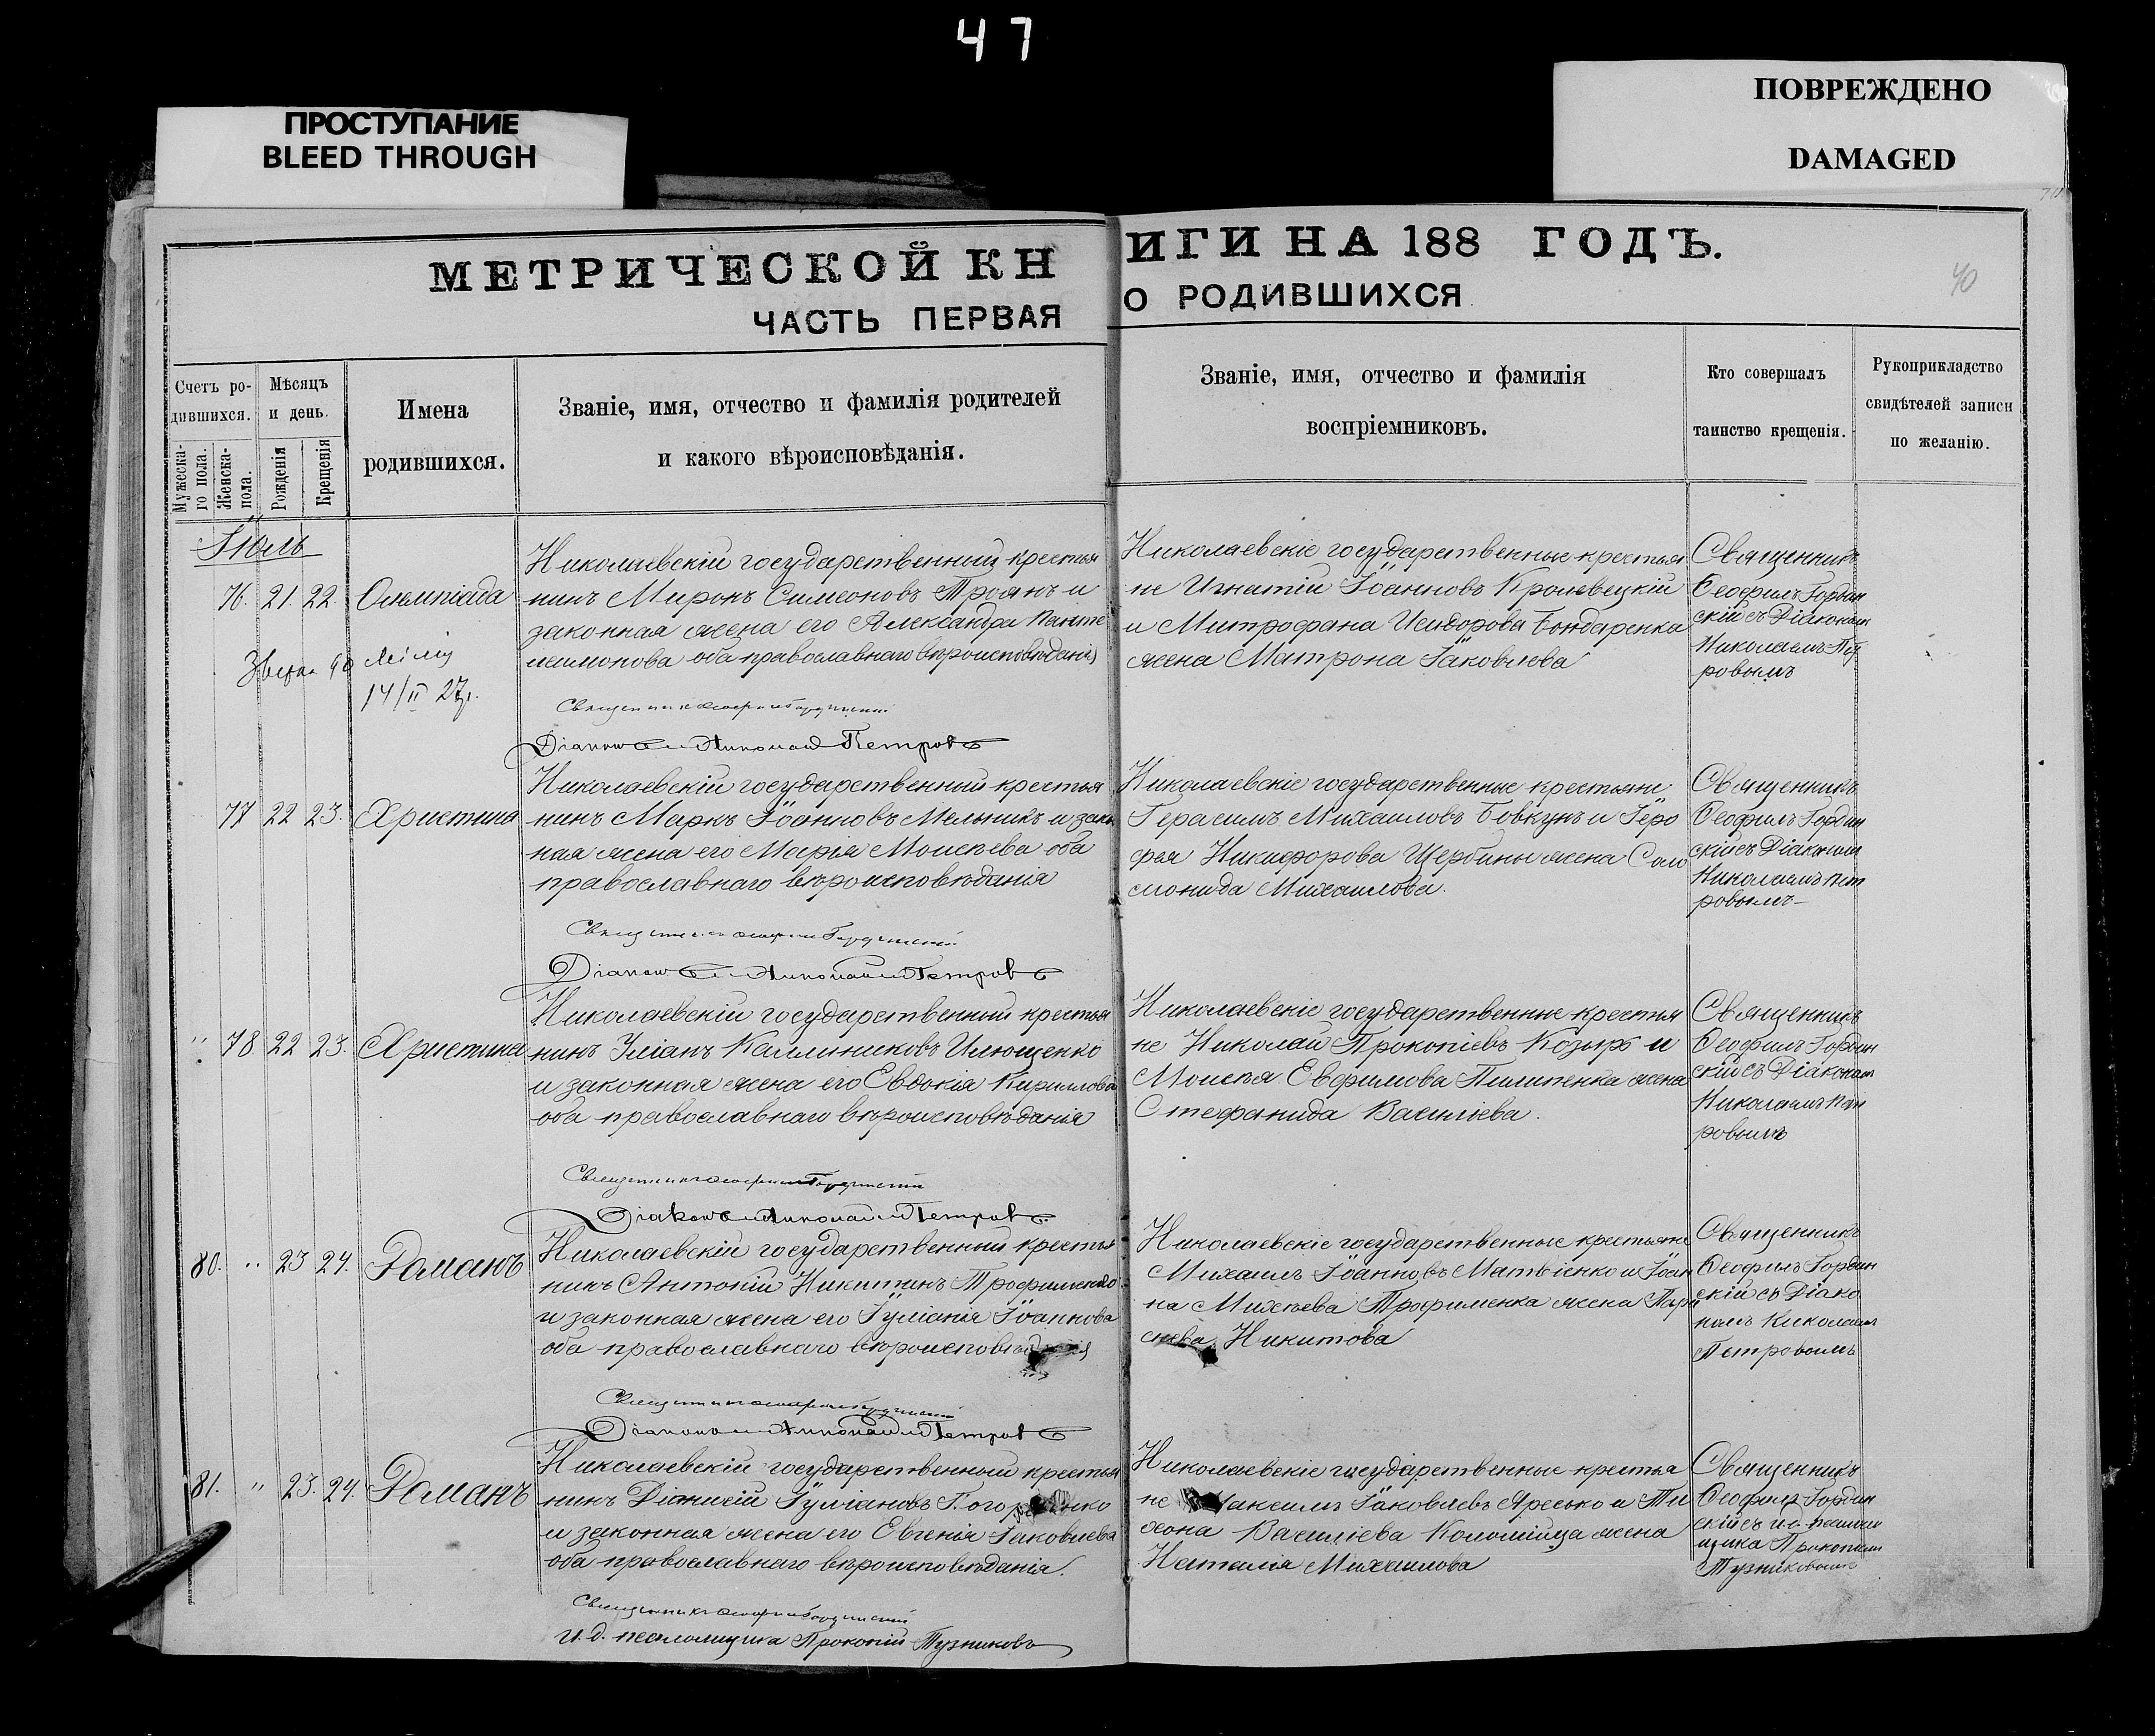 47
ПРОСТУПАНИЕ
BLEED THROUGH
ПОВРЕЖДЕНО
DAMAGED
МЕТРИЧЕСКОЙ КН
ИГИ НА 188 ГОДЪ.
40
ЧАСТЬ ПЕРВАЯ
О РОДИВШИХСЯ
Счетъ ро-
дившихся.
Мужеска-
го пола.
Женска-
пола.
Мѣсяцъ
и день.
Рожденія
Крещенія
Имена
родившихся.
Званіе, имя, отчество и фамилія родителей
и какого вѣроисповѣданія.
Званіе, имя, отчество и фамилія
воспріемниковъ.
Кто совершалъ
таинство крещенія.
Рукоприкладство
свидѣтелей записи
по желанію.
Іюль
76. 21. 22. Олимпіада
14/II 27р.
Николаевскій государственный крестья
нинъ Миронъ Симеоновъ Троянъ и
законная жена его Александра Панте
леимонова оба православнаго вѣроисповѣданія
Діаконъ Николай Петровъ
Николаевскіе государственные крестья
не Игнатій Іоанновъ Кролевецкій
и Митрофана Исидорова Бондаренка
жена Матрона Іаковлева
Священникъ
Ѳеофилъ Гордин
скій съ Діаконом
Николаемъ Пет
ровымъ
77 22 23. Христина
Николаевскій государственный крестья
нинъ Маркъ Іоанновъ Мельникъ и закон
ная жена его Марія Моисѣева оба
православнаго вѣроисповѣданія
Діаконъ Николай Петровъ
Николаевскіе государственные крестьяне
Герасимъ Михаиловъ Бовкунъ и Іеро
фея Никифорова Щербины жена Сало
монида Михаилова.
Священникъ
Ѳеофилъ Гордин
скій съ Діаконом
Николаемъ Пет
ровымъ
" 78. 22 23. Христина
Николаевскій государственный крестья
нинъ Уліанъ Каллиниковъ Илющенко
и законная жена его Евдокія Кириллова
оба православнаго вѣроисповѣданія
Діаконъ Николай Петровъ
Николаевскіе государственные крестья
не Николай Прокопіевъ Козырь и
Моисея Евфимова Пилипенка жена
Стефанида Василіева.
Священникъ
Ѳеофилъ Гордин
скій съ Діаконом
Николаемъ Пет
ровымъ
80. " 23 24. Романъ
Николаевскій государственный крестья
нинъ Антоній Никитинъ Трофименко
и законная жена его Іуліанія Іоаннова
оба православнаго
Діаконъ Николай Петровъ
Николаевскіе государственные крестьяне
Михаилъ Іоанновъ Матвіенко и Іоан
на Михеева Трофименка жена
Никитова
Священникъ
Ѳеофилъ Гордин
скій съ Діако
номъ Николаем
Петровымъ
81. " 23. 24. Романъ
Николаевскій государственный крестья
нинъ Діонисій Іуліановъ
и законная жена его Евгенія Іаковлева
оба православнаго вѣроисповѣданія.
И. д. псаломщика Прокопій Тузниковъ
Николаевскіе государственные крестья
не Максимъ Іаковлевъ Яресько и Ти
хона Василіева Коломійца жена
Наталія Михаилова
Священникъ
Ѳеофилъ Гордин
скій съ и. д. псалом
щика Прокопіем
Тузниковымъ